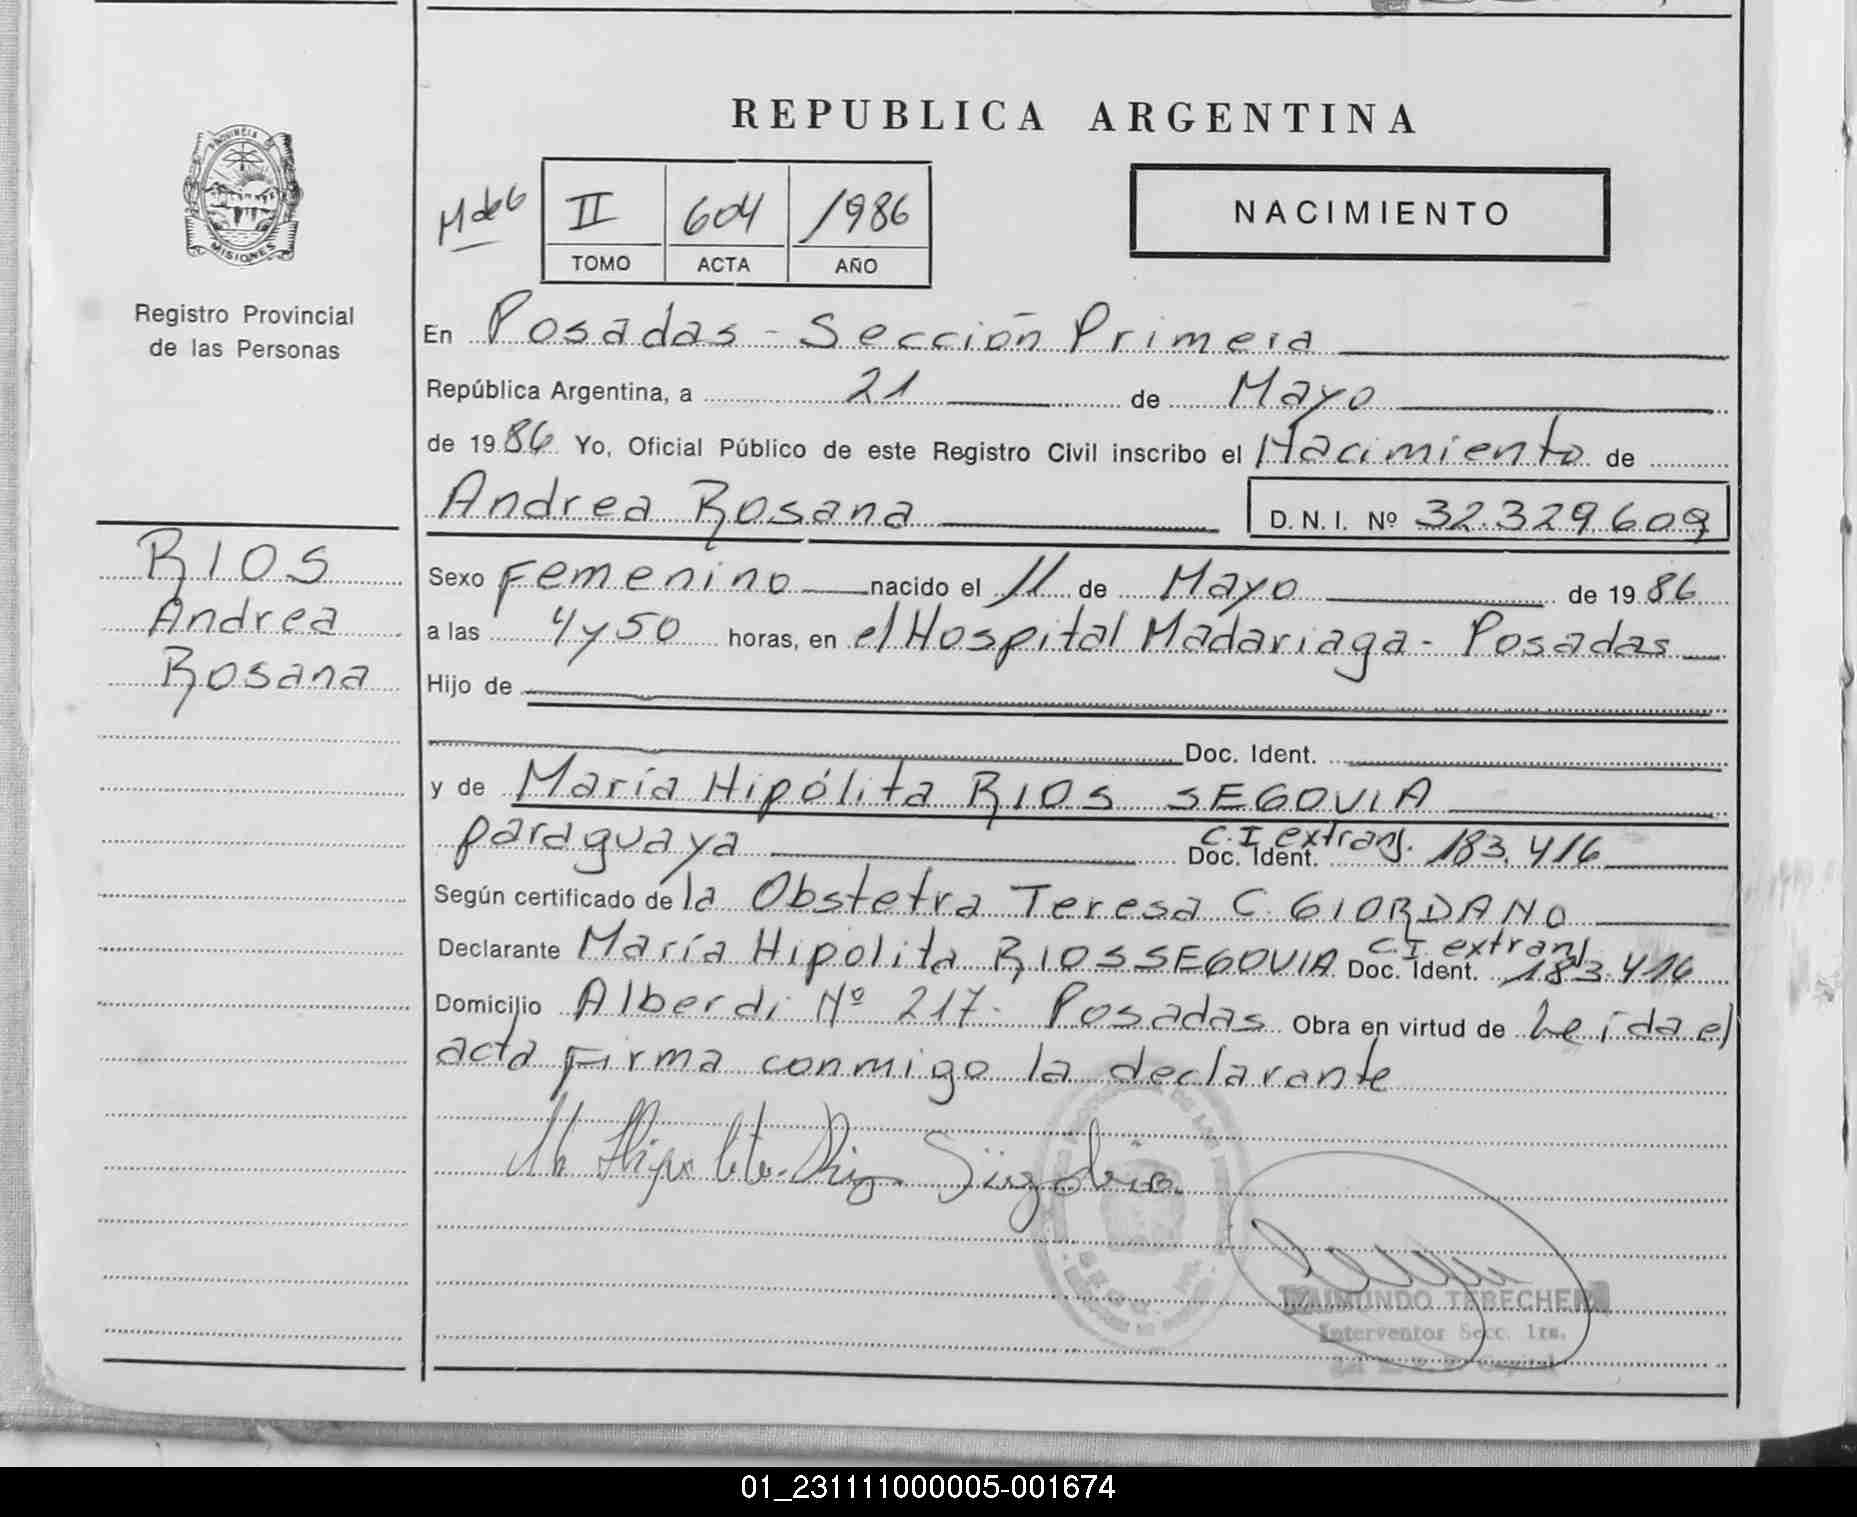 REPUBLICA ARGENTINA
PROVINCIA DE
MISIONES
Registro Provincial
de las Personas
M de 6
II 604 1986
TOMO ACTA AÑO
NACIMIENTO
En Posadas - Sección Primera
República Argentina, a 21 de Mayo
de 1986 Yo, Oficial Público de este Registro Civil inscribo el Nacimiento de
Andrea Rosana D.N.I. Nº 32.329.609
RIOS
Andrea
Rosana
Sexo Femenino nacido el 11 de Mayo de 1986
a las 4 y 50 horas, en el Hospital Madariaga - Posadas
Hijo de
Doc. Ident.
y de María Hipólita RIOS SEGOVIA
paraguaya Doc. Ident. C.I extranj. 183.416
Según certificado de la Obstetra Teresa C. GIORDANO
Declarante María Hipólita RIOS SEGOVIA Doc. Ident. C.I. extranj 183.416
Domicilio Alberdi Nº 217 - Posadas Obra en virtud de Leída el
acta firma conmigo la declarante
Ma Hipolita Rios Segobia
RAIMUNDO TERECHEN
Interventor Secc. 1ra.
Capital
01_231111000005-001674